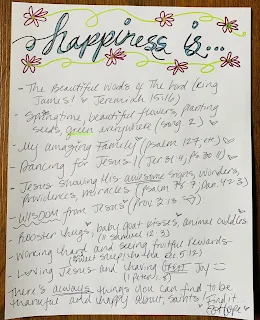 happiness is...
- The Beautiful Words of The Lord (King
James! ♥ Jeremiah 15:16)
- Springtime, beautiful flowers, planting
seeds, green everywhere (Song 2) ♥
- My amazing Family! (Psalm 127,
- Dancing for Jesus! (Jer 31:4, Ps 30:11)
- Jesus showing His awesome signs, wonders,
Providences, miracles (Psalm
- WISDOM from Jesus (Prov 2
- Rooster hugs, baby goat kisses, animal cuddles
(2 Samuel 12:3)
- Working hard and seeing fruitful rewards-
(sweet sleep
- Loving Jesus and having JESUS' Joy
(1 Peter 1:8)
There's always things you can find to be
thankful and happy about, saints! Find it